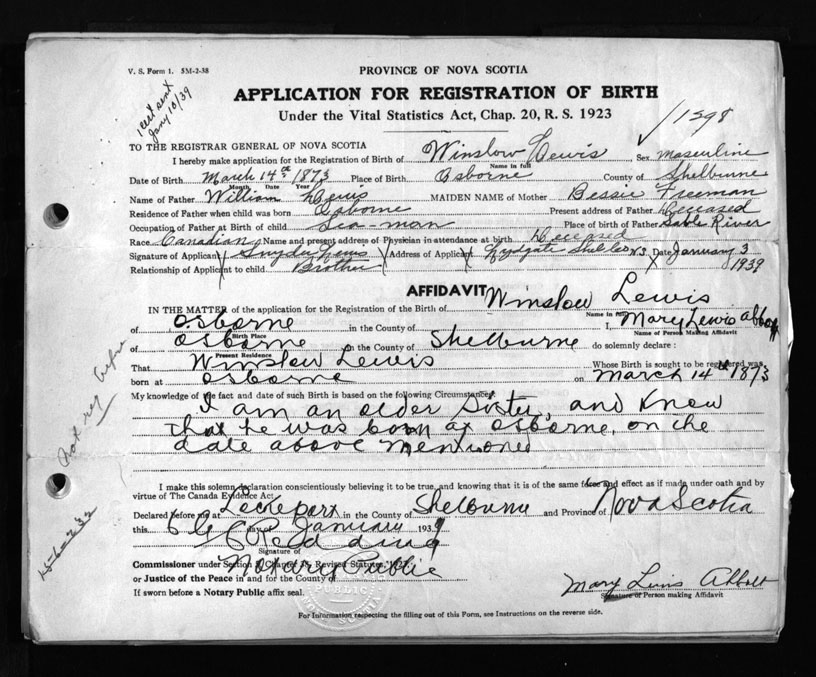 V. S. Form 1. 5M-2-38
PROVINCE OF NOVA SCOTIA
1 cert sent
Jany 10/39
APPLICATION FOR REGISTRATION OF BIRTH
Under the Vital Statistics Act, Chap. 20, R. S. 1923
1898
TO THE REGISTRAR GENERAL OF NOVA SCOTIA
I hereby make application for the Registration of Birth of Winslow Lewis Sex Masculine
Name in full
Date of Birth March 14th 1873 Place of Birth Osborne County of Shelburne
Month Date Year
Name of Father William Lewis MAIDEN NAME of Mother Bessie Freeman
Residence of Father when child was born Osborne Present address of Father Deceased
Occupation of Father at Birth of child Sea-man Place of birth of Father Sable River
Race Canadian Name and present address of Physician in attendance at birth Deceased
Signature of Applicant Snyder Lewis Address of Applicant N.S. Date January 3
Relationship of Applicant to child Brother 1939
AFFIDAVIT
IN THE MATTER of the application for the Registration of Birth of Winslow Lewis
Name in full
of Osborne in the County of I, Mary Lewis Abbott
Birth Place Name of Person Making Affidavit
of Osborne in the County of Shelburne do solemnly declare :
Present Residence
That Winslow Lewis Whose Birth is sought to be registered was
born at Osborne on March 14th 1873
My knowledge of the fact and date of such Birth is based on the following Circumstances:
I am an older Sister, and Know
that he was born at Osborne, on the
date above mentioned
Not reg before
I make this solemn declaration conscientiously believing it to be true, and knowing that it is of the same force and effect as if made under oath and by
virtue of The Canada Evidence Act.
Declared before me at Lockeport in the County of Shelburne and Province of Nova Scotia
this 6th day of January 1939
Signature of
Commissioner under Section Chapter Revised Statutes,
Notary Public
or Justice of the Peace in and for the County of
If sworn before a Notary Public affix seal.
Mary Lewis Abbott
Signature of Person making Affidavit
For Information respecting the filling out of this Form, see Instructions on the reverse side.
PUBLIC